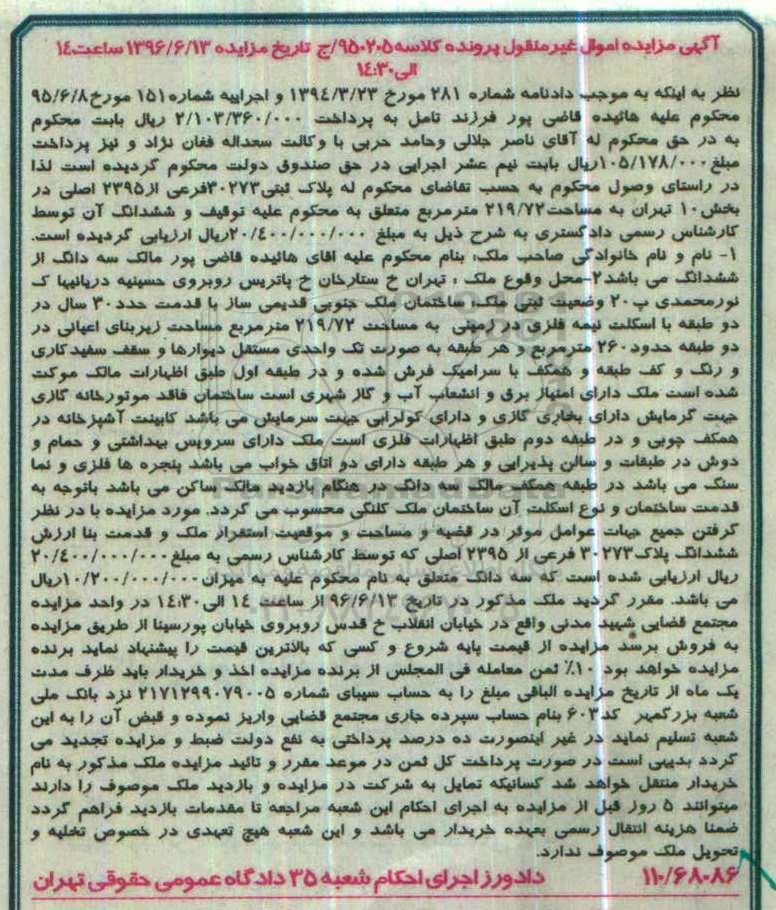 آگهی مزایده اموال غیرمنقول پرونده کلاسه ۹۵۰۲۰۵/ج تاریخ مزایده ۱۳۹۶/۶/۱۳ ساعت ۱۴
الی ۱۴:۳۰
نظر به اینکه به موجب دادنامه شماره ۲۸۱ مورخ ۱۳۹۴/۳/۲۳ و اجراییه شماره ۱۵۱ مورخ ۹۵/۶/۸
محکوم علیه هائیده قاضی پور فرزند تامل به پرداخت ۲/۱۰۳/۳۶۰/۰۰۰ ریال بابت محکوم
به در حق محکوم له آقای ناصر جلالی وحامد حربی با وکالت سعداله فغان نژاد و نیز پرداخت
مبلغ ۱۰۵/۱۷۸/۰۰۰ ریال بابت نیم عشر اجرایی در حق صندوق دولت محکوم گردیده است لذا
در راستای وصول محکوم به حسب تقاضای محکوم له پلاک ثبتی ۳۰۲۷۳ فرعی از ۲۳۹۵ اصلی در
بخش ۱۰ تهران به مساحت ۲۱۹/۷۲ مترمربع متعلق به محکوم علیه توقیف و ششدانگ آن توسط
کارشناس رسمی دادگستری به شرح ذیل به مبلغ ۲۰/۴۰۰/۰۰۰/۰۰۰ ریال ارزیابی گردیده است.
۱- نام و نام خانوادگی صاحب ملک، بنام محکوم علیه اقای هائیده قاضی پور مالک سه دانگ از
ششدانگ می باشد ۲-محل وقوع ملک ، تهران خ ستارخان خ پاتریس روبروی حسینیه دریانیها ک
نورمحمدی پ ۲۰ وضعیت ثبتی ملک، ساختمان ملک جنوبی قدیمی ساز با قدمت حدد ۳۰ سال در
دو طبقه با اسکلت نیمه فلزی در زمینی به مساحت ۲۱۹/۷۲ مترمربع مساحت زیربنای اعیانی در
دو طبقه حدود ۲۶۰ مترمربع و هر طبقه به صورت تک واحدی مستقل دیوارها و سقف سفیدکاری
و رنگ و کف طبقه و همکف با سرامیک فرش شده و در طبقه اول طبق اظهارات مالک موکت
شده است ملک دارای امتیاز برق و انشعاب آب و گاز شهری است ساختمان فاقد موتورخانه گازی
جهت گرمایش دارای بخاری گازی و دارای کولرابی جهت سرمایش می باشد کابینت آشپزخانه در
همکف چوبی و در طبقه دوم طبق اظهارات فلزی است ملک دارای سرویس بهداشتی و حمام و
دوش در طبقات و سالن پذیرایی و هر طبقه دارای دو اتاق خواب می باشد پنجره ها فلزی و نما
سنگ می باشد در طبقه همکف مالک سه دانگ در هنگام بازدید مالک ساکن می باشد باتوجه به
قدمت ساختمان و نوع اسکلت آن ساختمان ملک کلنگی محسوب می گردد. مورد مزایده با در نظر
گرفتن جمیع جهات عوامل موثر در قضیه و مساحت و موقعیت استقرار ملک و قدمت بنا ارزش
ششدانگ پلاک ۳۰۲۷۳ فرعی از ۲۳۹۵ اصلی که توسط کارشناس رسمی به مبلغ ۲۰/۴۰۰/۰۰۰/۰۰۰
ریال ارزیابی شده است که سه دانگ متعلق به نام محکوم علیه به میزان ۱۰/۲۰۰/۰۰۰/۰۰۰ ریال
می باشد. مقرر گردید ملک مذکور در تاریخ ۹۶/۶/۱۳ از ساعت ۱۴ الی ۱۴:۳۰ در واحد مزایده
مجتمع قضایی شهید مدنی واقع در خیابان انقلاب خ قدس روبروی خیابان پورسینا از طریق مزایده
به فروش برسد مزایده از قیمت پایه شروع و کسی که بالاترین قیمت را پیشنهاد نماید برنده
مزایده خواهد بود ۱۰٪ ثمن معامله فی المجلس از برنده مزایده اخذ و خریدار باید ظرف مدت
یک ماه از تاریخ مزایده الباقی مبلغ را به حساب سیبای شماره ۲۱۷۱۲۹۹۰۷۹۰۰۵ نزد بانک ملی
شعبه بزرگمهر کد ۶۰۳ بنام حساب سپرده جاری مجتمع قضایی واریز نموده و قبض آن را به این
شعبه تسلیم نماید در غیر اینصورت ده درصد پرداختی به نفع دولت ضبط و مزایده تجدید می
گردد بدیهی است در صورت پرداخت کل ثمن در موعد مقرر و تائید مزایده ملک مذکور به نام
خریدار منتقل خواهد شد کسانیکه تمایل به شرکت در مزایده و بازدید ملک موصوف را دارند
میتوانند ۵ روز قبل از مزایده به اجرای احکام این شعبه مراجعه تا مقدمات بازدید فراهم گردد
ضمنا هزینه انتقال رسمی بعهده خریدار می باشد و این شعبه هیچ تعهدی در خصوص تخلیه و
تحویل ملک موصوف ندارد.
۱۱۰/۶۸۰۸۶ دادورز اجرای احکام شعبه ۳۵ دادگاه عمومی حقوقی تهران